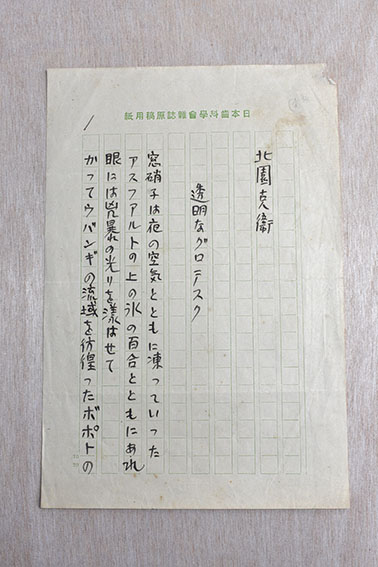 日本齒科學會雜誌原稿用紙
北園克衛
透明なグロテスク
窓硝子は夜の空気とともに凍っていった
アスファルトの上の氷の百合とともにあれ
眼には兇暴の光りを漾はせて
かつてウバンギの流域を彷徨ったボポトの
1